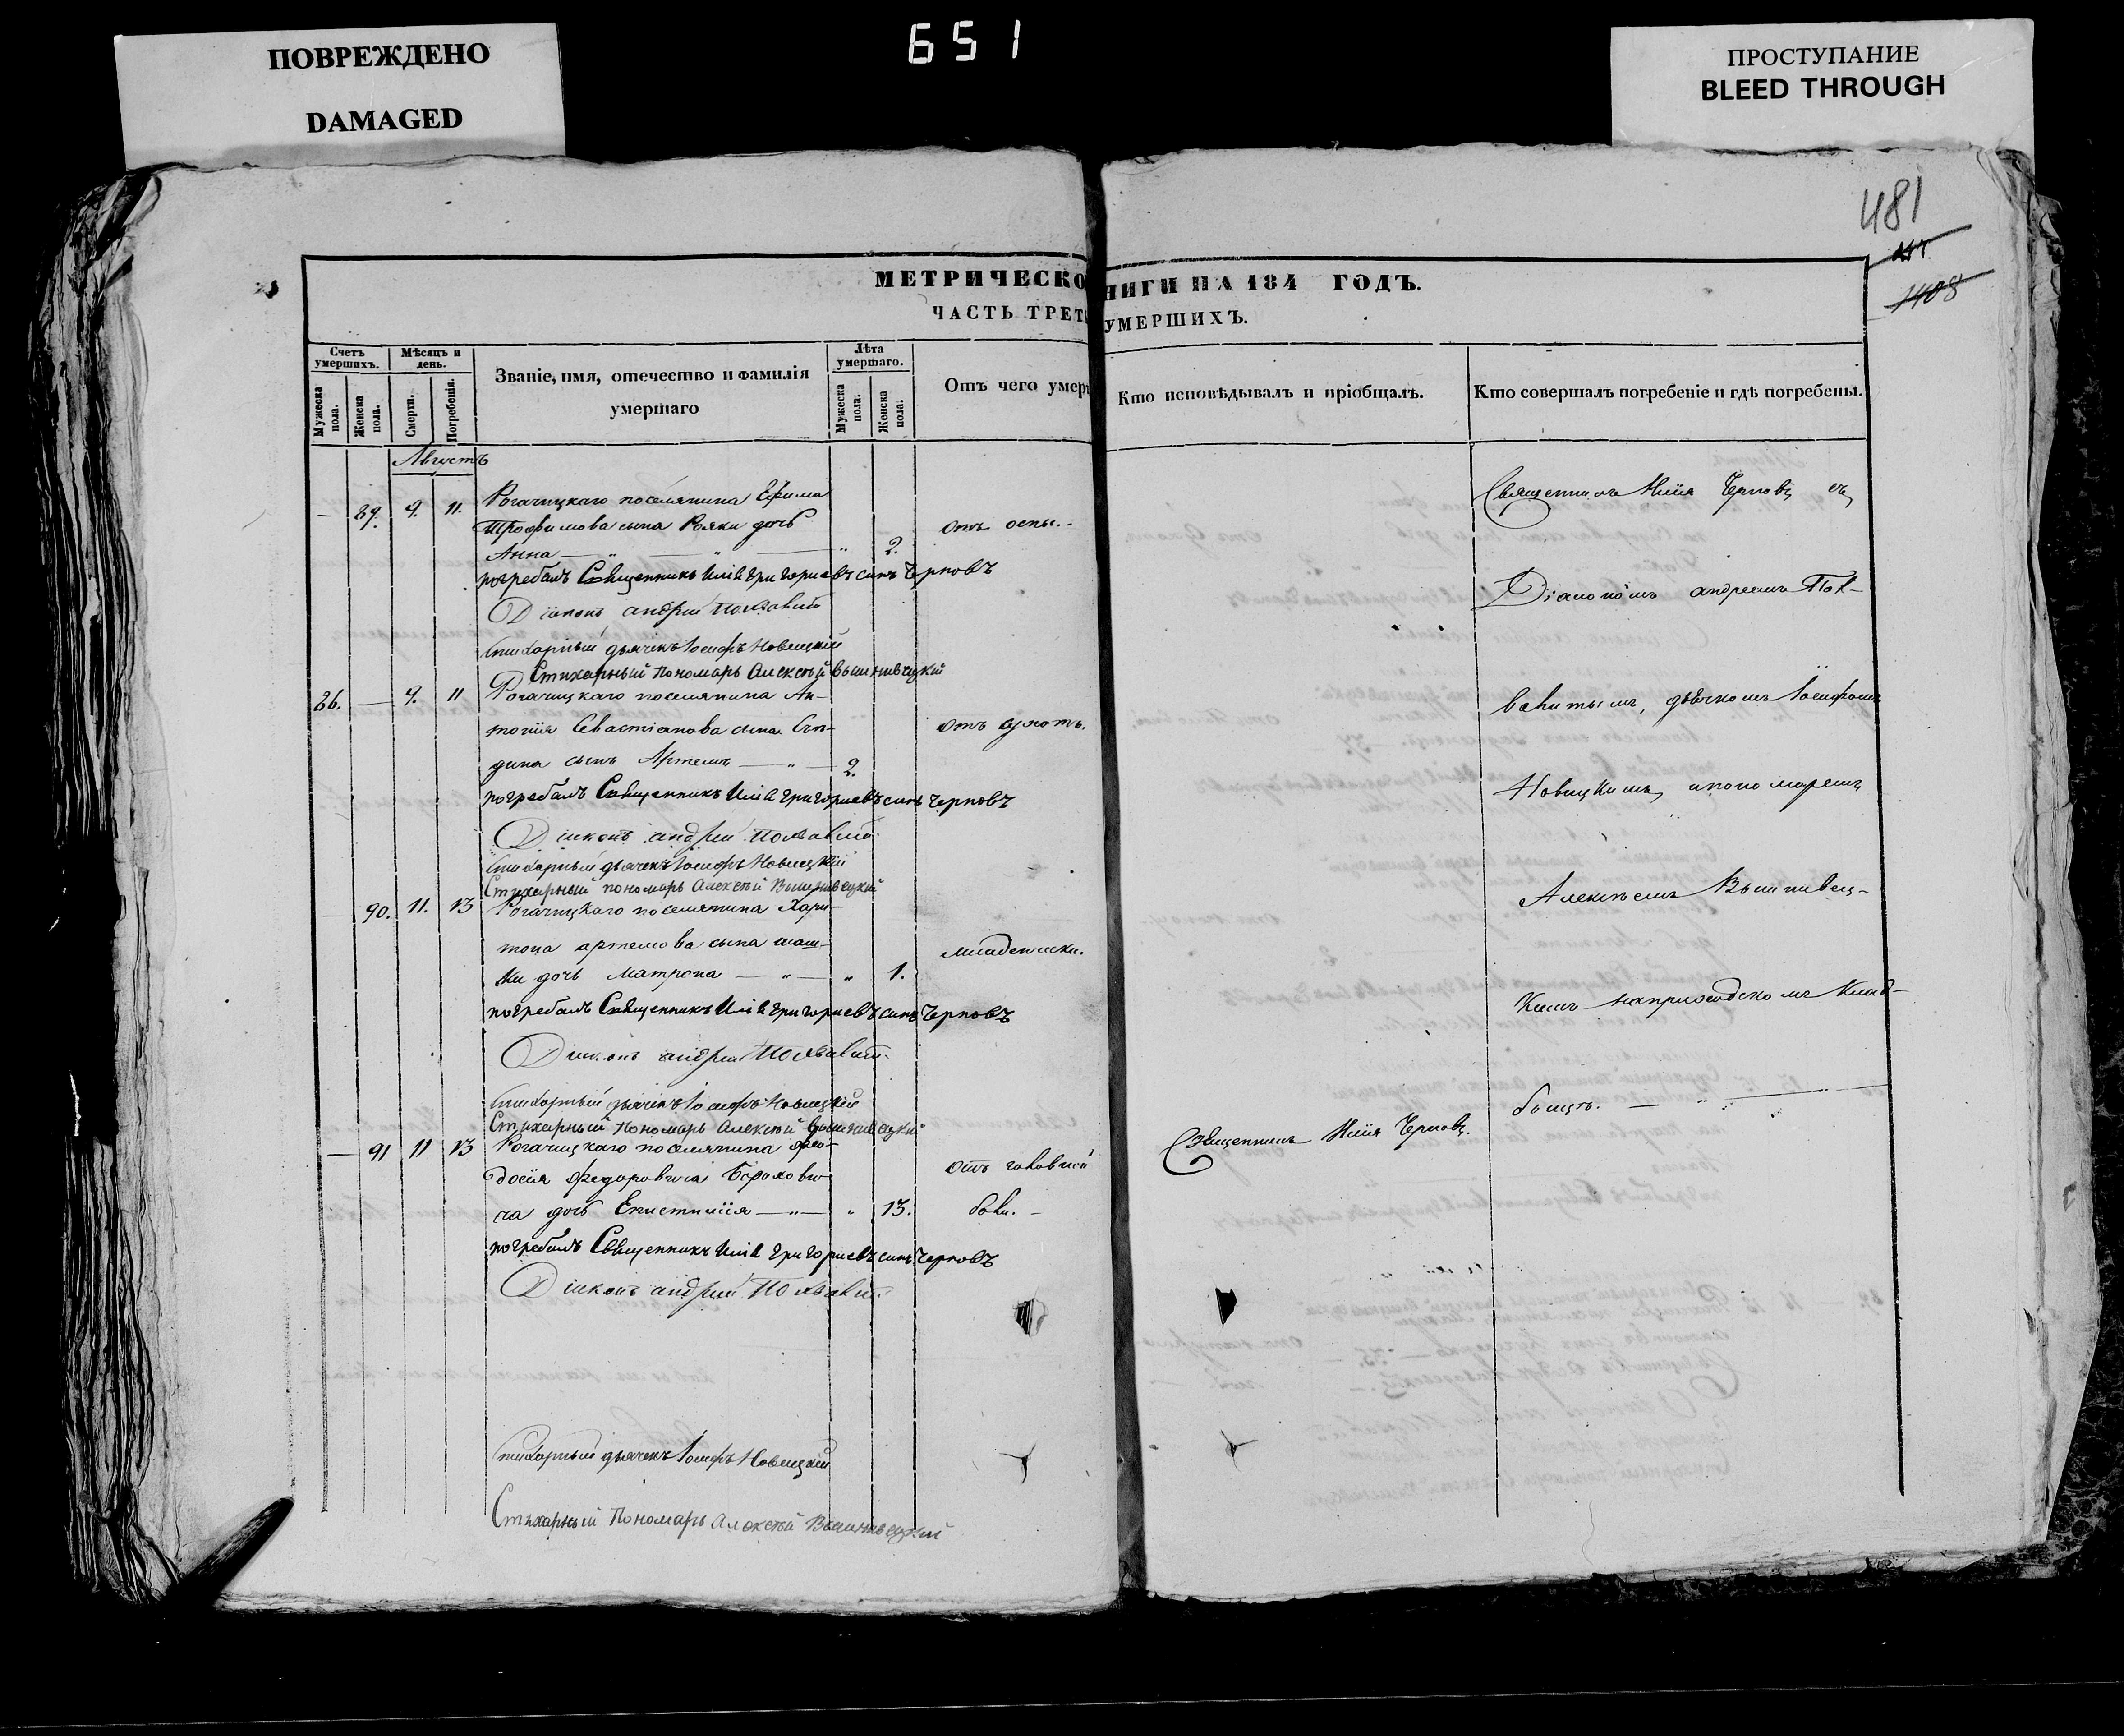 ПОВРЕЖДЕНО
DAMAGED
651
ПРОСТУПАНИЕ
BLEED THROUGH
481
1408
МЕТРИЧЕСКО НИГИ НА 184 ГОДЪ.
ЧАСТЬ ТРЕТ УМЕРШИХЪ.
Счетъ умершихъ.
Мѣсяцъ и день.
Званіе, имя, отечество и фамилія умершаго
Лѣта умершаго.
Отъ чего умер
Кто исповѣдывалъ и пріобщалъ.
Кто совершалъ погребеніе и гдѣ погребены.
Мужеска пола.
Женска пола.
Смерти.
Погребенія.
Мужеска пола.
Женска пола.
Августъ
— 89. 9. 11. Рогачицкаго поселянина Ефима
Трофимова сына Рояки дочь
Анна — " — " — " 2. отъ оспы.
погребалъ Священникъ Илія Григориевъ синъ Черновъ
Діяконъ андрей
Стихарный дьячекъ Іосифъ Новицкій
Стихарный Пономарь Алексѣй Вышнивецкий
86. — 9. 11 Рогачицкаго поселянина Ан-
тонія Севастіанова сына
дина сынъ Артемъ — " — 2. отъ сухотъ.
погребалъ Священникъ Илія Григориевъ синъ Черновъ
Діяконъ андрей
Стихарный дьячекъ Іосифъ Новицкій
Стихарный пономарь Алексѣй Вышнивецкий
— 90. 11. 13 Рогачицкаго поселянина Хари-
тона артемова сына шаш-
ки дочь Матрона — " — " 1. младенчески.
погребалъ Священникъ Илія Григориевъ синъ Черновъ
Діяконъ андрей
Стихарный дьячекъ Іосифъ Новицкій
Стихарный Пономарь Алексѣй Вышнивецкий
— 91 11 13 Рогачицкаго поселянина Фео-
досія Федоровича
ча дочь Епистимія — " — " 13. отъ головной
боли. —
погребалъ Священникъ Илія Григориевъ синъ Черновъ
Діяконъ андрей
Стихарный дьячекъ Іосифъ Новицкій
Стихарный Пономарь Алексѣй Вышнивецкий
Священникъ Илія Черновъ.
Священникъ Илія Черновъ съ
Діакономъ андреемъ
дьячкомъ Іосифомъ
Новицкимъ, и пономаремъ
Алексѣемъ Вышнивец-
кимъ на приходскомъ клад-
бищѣ. — " —